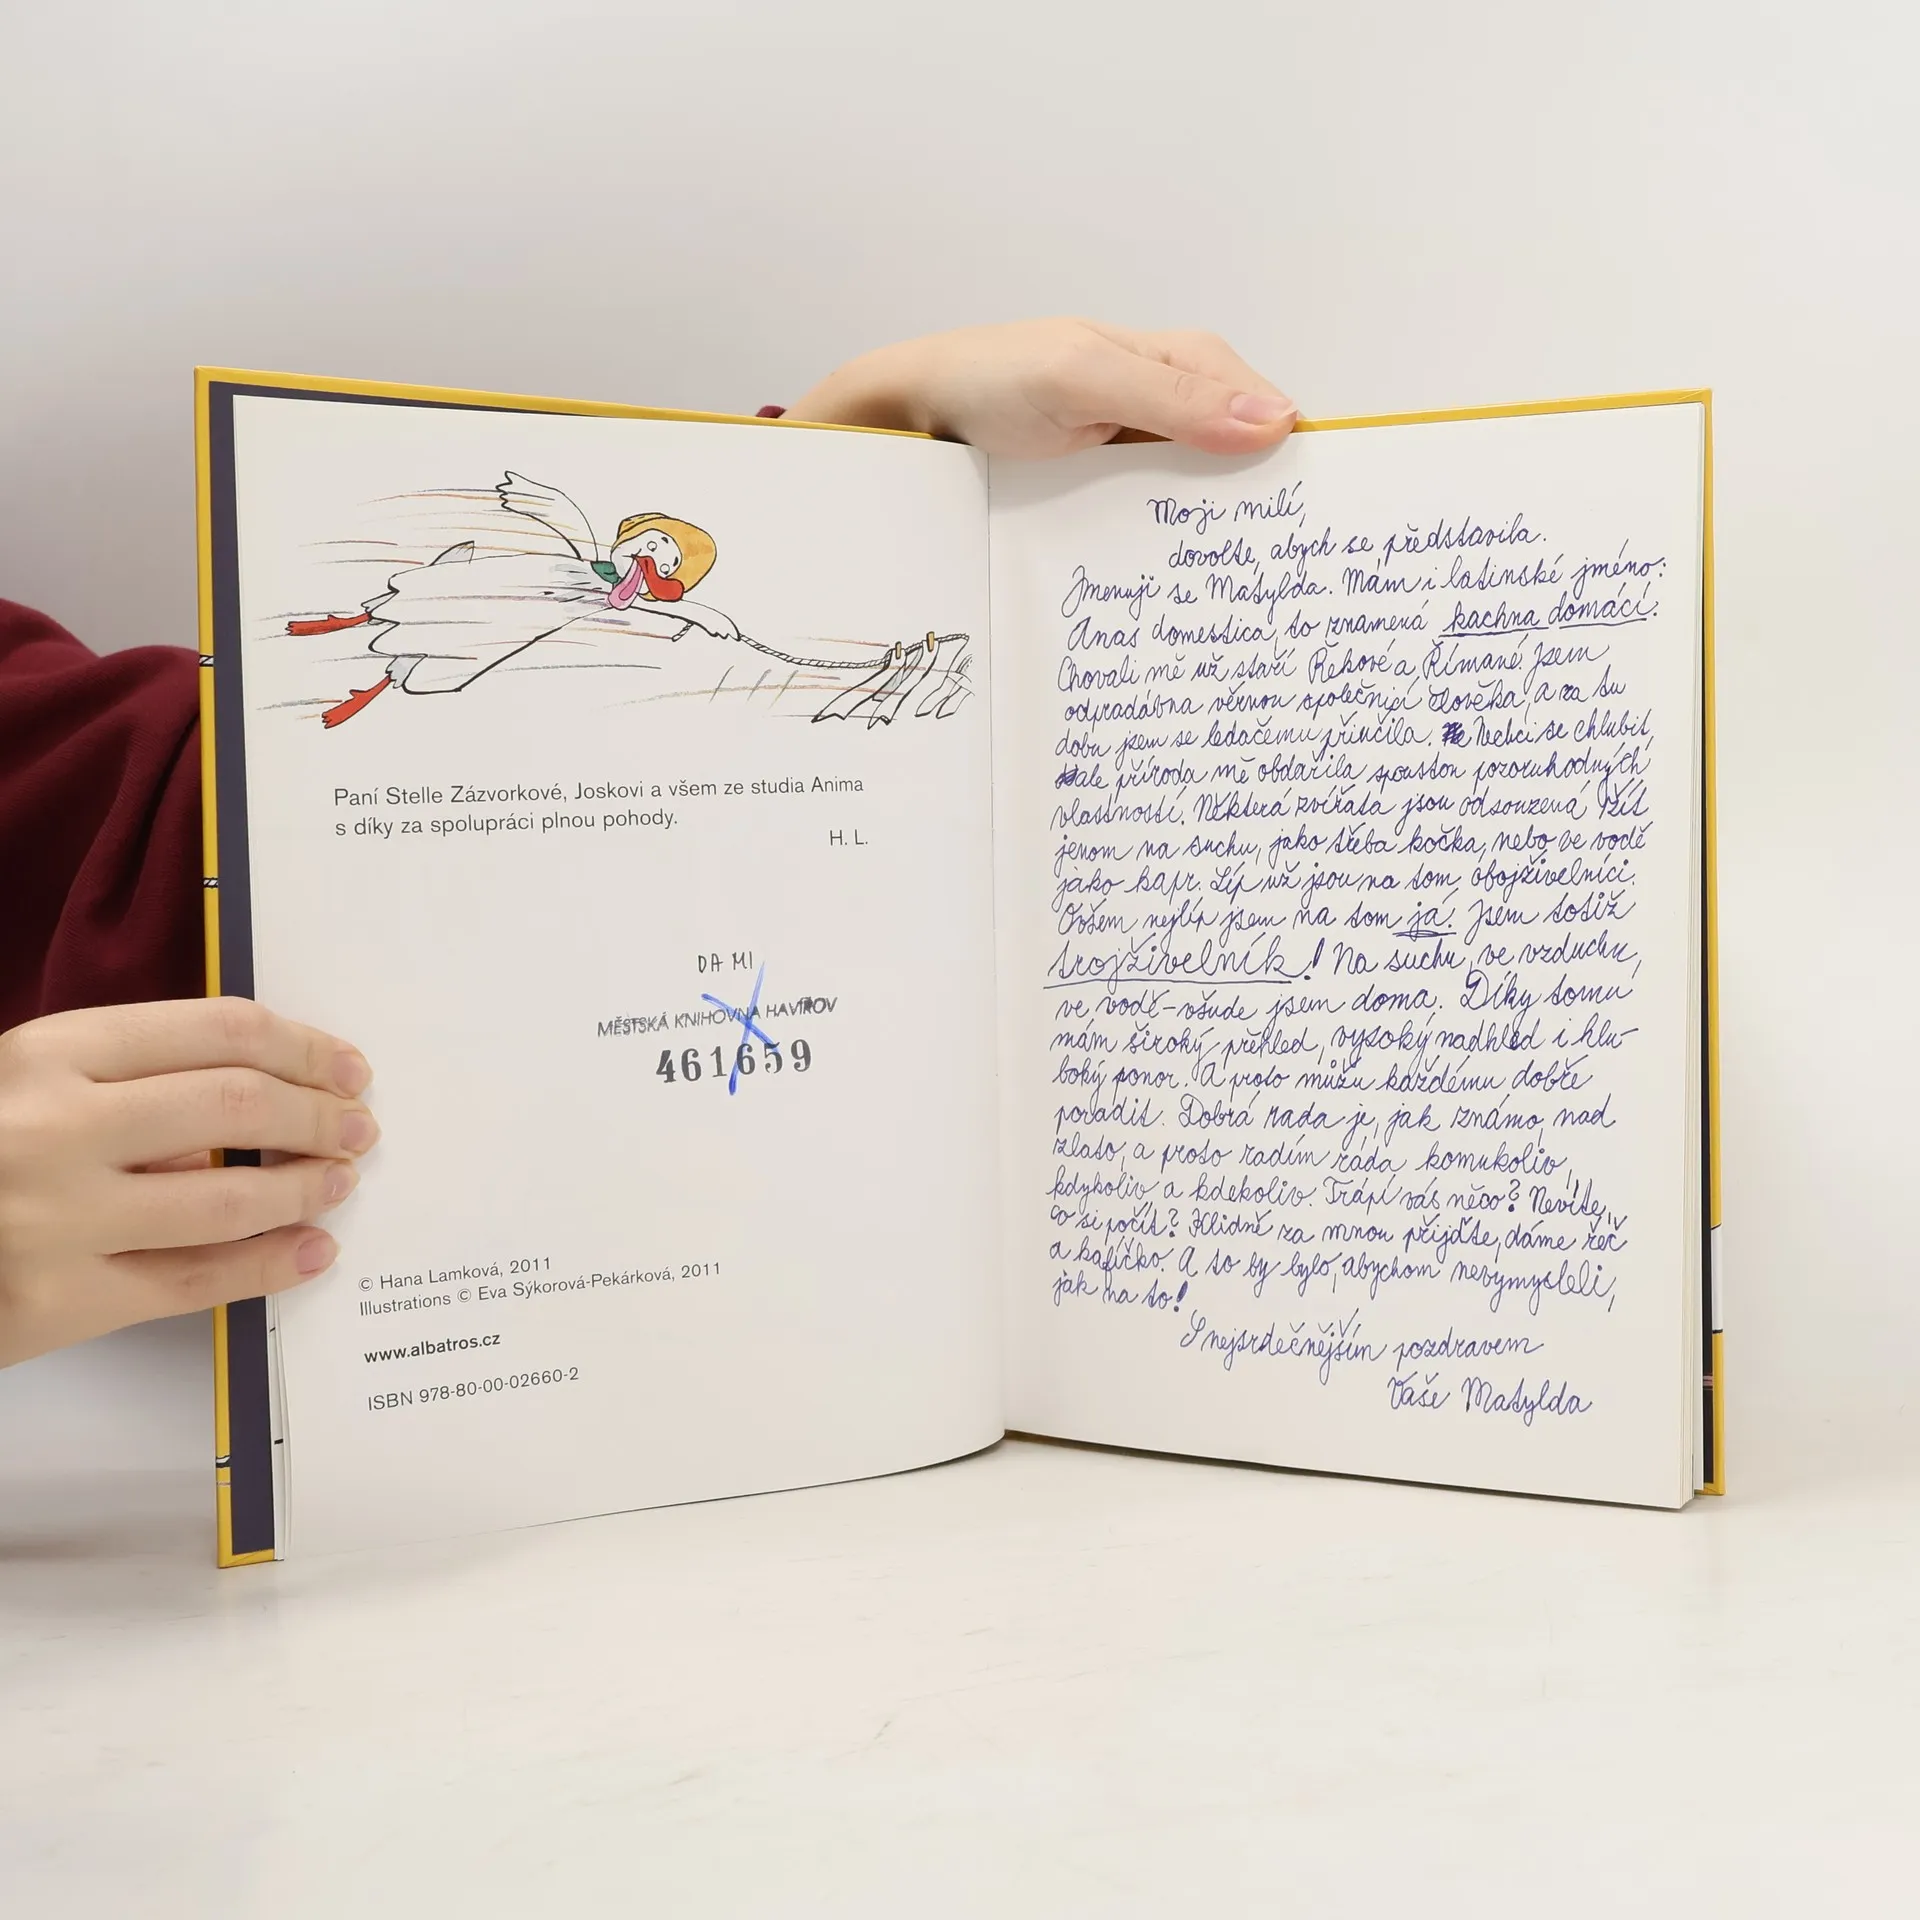 Paní Stelle Zázvorkové, Joskovi a všem ze studia Anima
s díky za spolupráci plnou pohody.
H. L.
DA MI
MĚSTSKÁ KNIHOVNA HAVÍŘOV
461659
© Hana Lamková, 2011
Illustrations © Eva Sýkorová-Pekárková, 2011
www.albatros.cz
ISBN 978-80-00-02660-2
Moji milí,
dovolte, abych se představila.
Jmenuji se Matylda. Mám i latinské jméno:
Anas domestica, to znamená kachna domácí.
Chovali mě už staří Řekové a Římané. Jsem
odpradávna věrnou společnicí člověka, a za tu
dobu jsem se ledačemu přiučila. Nechci se chlubit,
ale příroda mě obdařila spoustou pozoruhodných
vlastností. Některá zvířata jsou odsouzená žít
jenom na suchu, jako třeba kočka, nebo ve vodě
jako kapr. Líp už jsou na tom obojživelníci.
Ovšem nejlíp jsem na tom já! Jsem totiž
trojživelník! Na suchu, ve vzduchu,
ve vodě – všude jsem doma. Díky tomu
mám široký přehled, vysoký nadhled i hlu-
boký ponor. A proto můžu každému dobře
poradit. Dobrá rada je, jak známo, nad
zlato, a proto radím ráda komukoliv,
kdykoliv a kdekoliv. Trápí vás něco? Nevíte,
co si počít? Klidně za mnou přijďte, dáme řeč
a kafíčko. A to by bylo, abychom nevymysleli,
jak na to!
S nejsrdečnějším pozdravem
Vaše Matylda